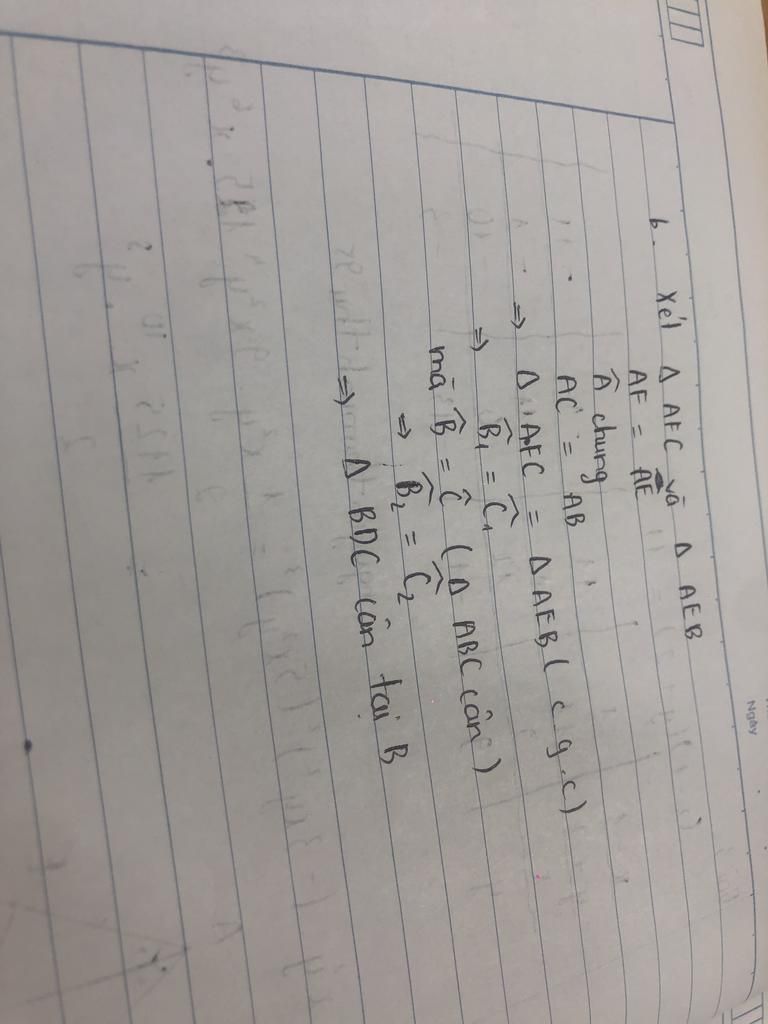 Ngày
b. Xét Δ AFC và Δ AEB
AF = AE
Â chung
AC = AB
=> Δ AFC = Δ AEB ( c.g.c)
=> B̂₁ = Ĉ₁
mà B̂ = Ĉ ( Δ ABC cân )
=> B̂₂ = Ĉ₂
=> Δ BDC cân tại B